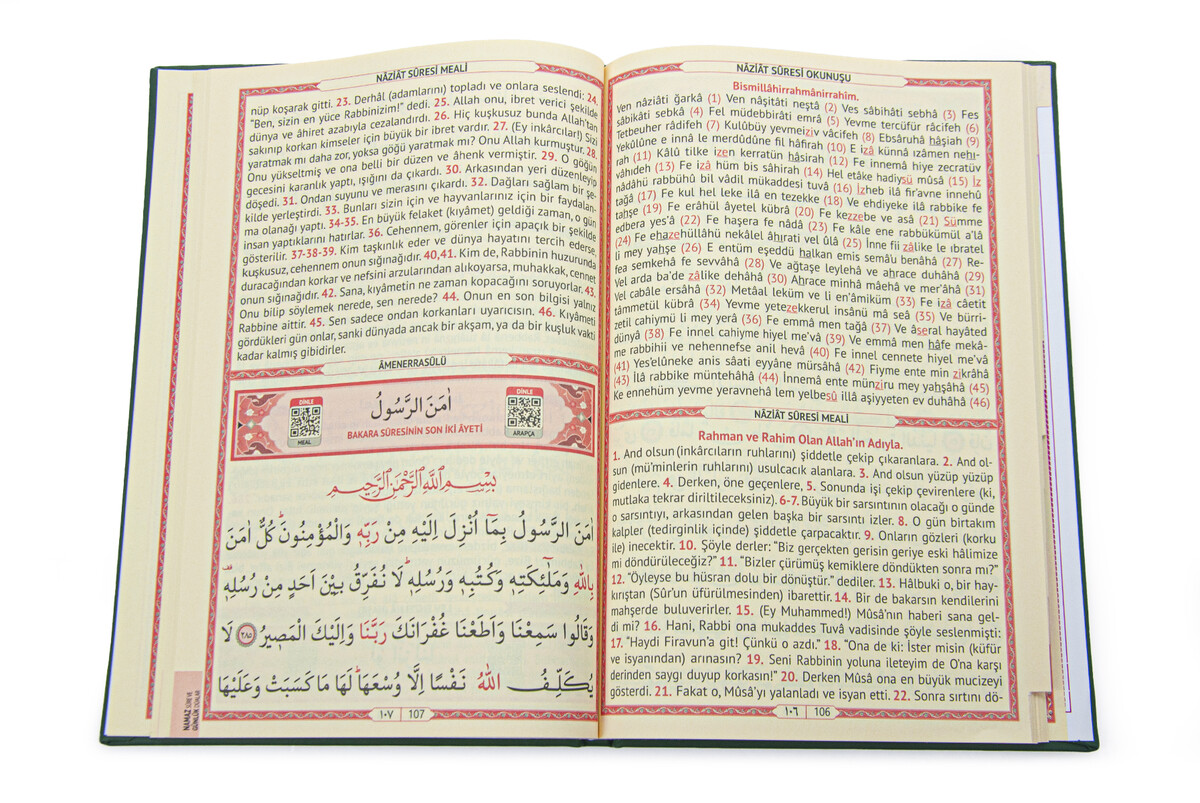 NÂZİÂT SÛRESİ OKUNUŞU
Bismillâhirrahmânirrahîm.
Ven nâziâti ğarkâ (1) Ven nâşitâti neştâ (2) Ves sâbihâti sebhâ (3) Fes
sâbikâti sebkâ (4) Fel müdebbirâti emrâ (5) Yevme tercüfür râcifeh (6)
Tetbeuher râdifeh (7) Kulûbüy yevmeiziv vâcifeh (8) Ebsâruhâ hâşiah (9)
Yekûlûne e innâ le merdûdûne fil hâfirah (10) E izâ künnâ ızâmen nehı-
rah (11) Kâlû tilke izen kerratün hâsirah (12) Fe innemâ hiye zecratüv
vâhıdeh (13) Fe izâ hüm bis sâhirah (14) Hel etâke hadiysü mûsâ (15) İz
nâdâhü rabbühû bil vâdil mükaddesi tuvâ (16) İzheb ilâ fir'avne innehû
tağâ (17) Fe kul hel leke ilâ en tezekke (18) Ve ehdiyeke ilâ rabbike fe
tahşe (19) Fe erâhül âyetel kübrâ (20) Fe kezzebe ve asâ (21) Sümme
edbera yes'â (22) Fe haşera fe nâdâ (23) Fe kâle ene rabbükümül a'lâ
(24) Fe ehazehüllâhü nekâlel âhırati vel ûlâ (25) İnne fii zâlike le ıbratel
li mey yahşe (26) E entüm eşeddü halkan emis semâ'u benâhâ (27) Re-
fea semkehâ fe sevvâhâ (28) Ve ağtaşe leylehâ ve ahrace duhâhâ (29)
Vel arda ba'de zâlike dehâhâ (30) Ahrace minhâ mâehâ ve mer'âhâ (31)
Vel cabâle ersâhâ (32) Metâal leküm ve li en'âmiküm (33) Fe izâ câetit
tâmmetül kübrâ (34) Yevme yetezekkerul insânü mâ seâ (35) Ve bürri-
zetil cahiymü li mey yerâ (36) Fe emmâ men tağâ (37) Ve âseral hayâted
dünyâ (38) Fe innel cahiyme hiyel me'vâ (39) Ve emmâ men hâfe mekâ-
me rabbihii ve nehennefse anil hevâ (40) Fe innel cennete hiyel me'vâ
(41) Yes'elûneke anis sâati eyyâne mürsâhâ (42) Fiyme ente min zikrâhâ
(43) İlâ rabbike müntehâhâ (44) İnnemâ ente münziru mey yahşâhâ (45)
Ke ennehüm yevme yeravnehâ lem yelbesû illâ aşiyyeten ev duhâhâ (46)
NÂZİÂT SÛRESİ MEALİ
Rahman ve Rahim Olan Allah'ın Adıyla.
1. And olsun (inkârcıların ruhlarını) şiddetle çekip çıkaranlara. 2. And ol-
sun (mü'minlerin ruhlarını) usulcacık alanlara. 3. And olsun yüzüp yüzüp
gidenlere. 4. Derken, öne geçenlere, 5. Sonunda işi çekip çevirenlere (ki,
mutlaka tekrar diriltileceksiniz). 6-7. Büyük bir sarsıntının olacağı o günde
o sarsıntıyı, arkasından gelen başka bir sarsıntı izler. 8. O gün birtakım
kalpler (tedirginlik içinde) şiddetle çarpacaktır. 9. Onların gözleri (korku
ile) inecektir. 10. Şöyle derler: "Biz gerçekten gerisin geriye eski hâlimize
mi döndürüleceğiz?" 11. "Bizler çürümüş kemiklere döndükten sonra mı?"
12. "Öyleyse bu hüsran dolu bir dönüştür." dediler. 13. Hâlbuki o, bir hay-
kırıştan (Sûr'un üfürülmesinden) ibarettir. 14. Bir de bakarsın kendilerini
mahşerde buluverirler. 15. (Ey Muhammed!) Mûsâ'nın haberi sana gel-
di mi? 16. Hani, Rabbi ona mukaddes Tuvâ vadisinde şöyle seslenmişti:
17. "Haydi Firavun'a git! Çünkü o azdı." 18. "Ona de ki: İster misin (küfür
ve isyanından) arınasın? 19. Seni Rabbinin yoluna ileteyim de O'na karşı
derinden saygı duyup korkasın!" 20. Derken Mûsâ ona en büyük mucizeyi
gösterdi. 21. Fakat o, Mûsâ'yı yalanladı ve isyan etti. 22. Sonra sırtını dö-
١٠٦ 106
NÂZİÂT SÛRESİ MEALİ
nüp koşarak gitti. 23. Derhâl (adamlarını) topladı ve onlara seslendi: 24.
"Ben, sizin en yüce Rabbinizim!" dedi. 25. Allah onu, ibret verici şekilde
dünya ve âhiret azabıyla cezalandırdı. 26. Hiç kuşkusuz bunda Allah'tan
sakınıp korkan kimseler için büyük bir ibret vardır. 27. (Ey inkârcılar!) Sizi
yaratmak mı daha zor, yoksa göğü yaratmak mı? Onu Allah kurmuştur. 28.
Onu yükseltmiş ve ona belli bir düzen ve âhenk vermiştir. 29. O göğün
gecesini karanlık yaptı, ışığını da çıkardı. 30. Arkasından yeri düzenleyip
döşedi. 31. Ondan suyunu ve merasını çıkardı. 32. Dağları sağlam bir şe-
kilde yerleştirdi. 33. Bunları sizin için ve hayvanlarınız için bir faydalan-
ma olanağı yaptı. 34-35. En büyük felaket (kıyâmet) geldiği zaman, o gün
insan yaptıklarını hatırlar. 36. Cehennem, görenler için apaçık bir şekilde
gösterilir. 37-38-39. Kim taşkınlık eder ve dünya hayatını tercih ederse,
kuşkusuz, cehennem onun sığınağıdır. 40,41. Kim de, Rabbinin huzurunda
duracağından korkar ve nefsini arzularından alıkoyarsa, muhakkak, cennet
onun sığınağıdır. 42. Sana, kıyâmetin ne zaman kopacağını soruyorlar. 43.
Onu bilip söylemek nerede, sen nerede? 44. Onun en son bilgisi yalnız
Rabbine aittir. 45. Sen sadece ondan korkanları uyarıcısın. 46. Kıyâmeti
gördükleri gün onlar, sanki dünyada ancak bir akşam, ya da bir kuşluk vakti
kadar kalmış gibidirler.
ÂMENERRASÛLÜ
DİNLE
MEAL
اٰمَنَ الرَّسُولُ
BAKARA SÛRESİNİN SON İKİ ÂYETİ
DİNLE
ARAPÇA
بِسْمِ اللّٰهِ الرَّحْمٰنِ الرَّحِيمِ
اٰمَنَ الرَّسُولُ بِمَٓا اُنْزِلَ اِلَيْهِ مِنْ رَبِّه۪ وَالْمُؤْمِنُونَۜ كُلٌّ اٰمَنَ
بِاللّٰهِ وَمَلٰٓئِكَتِه۪ وَكُتُبِه۪ وَرُسُلِه۪ۜ لَا نُفَرِّقُ بَيْنَ اَحَدٍ مِنْ رُسُلِه۪ۜ
وَقَالُوا سَمِعْنَا وَاَطَعْنَا غُفْرَانَكَ رَبَّنَا وَاِلَيْكَ الْمَص۪يرُ ﴿٢٨٥﴾ لَا
يُكَلِّفُ اللّٰهُ نَفْسًا اِلَّا وُسْعَهَاۜ لَهَا مَا كَسَبَتْ وَعَلَيْهَا
١٠٧ 107
NAMAZ SÛRE VE
GÜNLÜK DUALAR